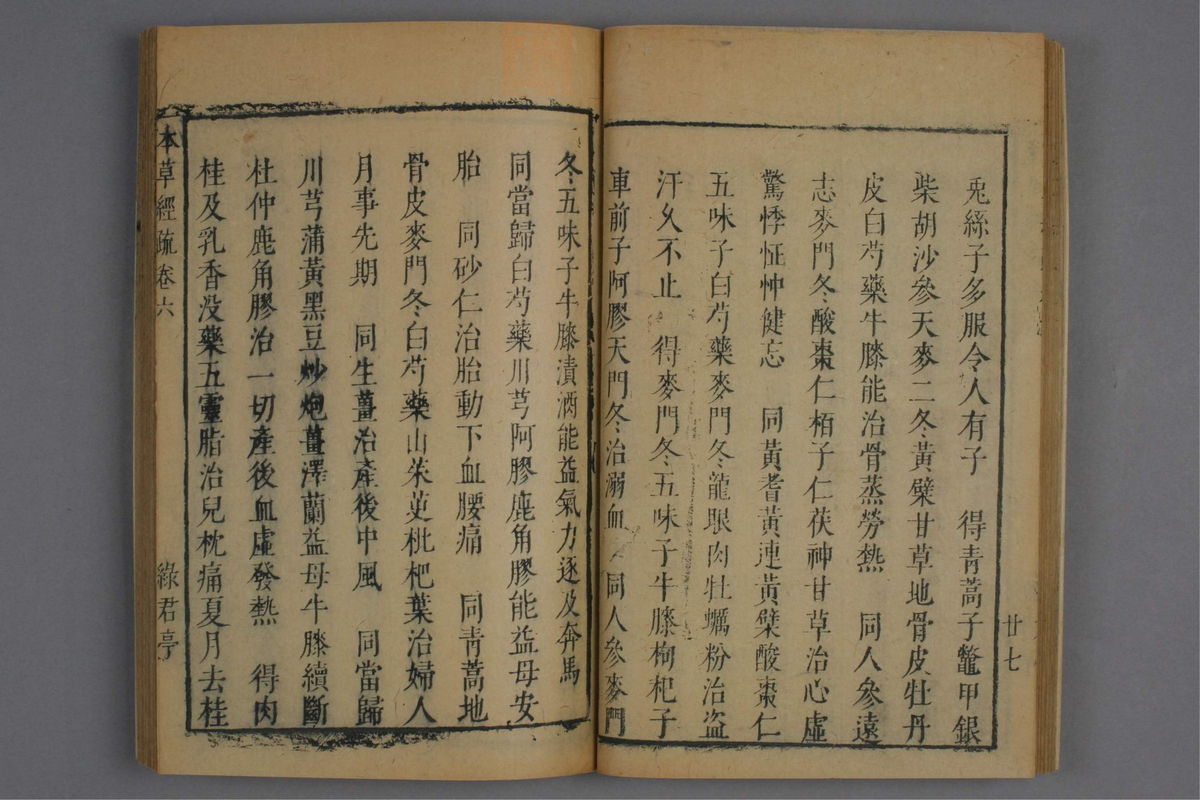 兎絲子多服令人有子　得青蒿子鼈甲銀
柴胡沙參天麥二冬黃檗甘草地骨皮牡丹
皮白芍藥牛膝能治骨蒸勞熱　同人參遠
志麥門冬酸棗仁栢子仁茯神甘草治心虛
驚悸怔忡健忘　同黃耆黃連黃檗酸棗仁
五味子白芍藥麥門冬龍眼肉牡蠣粉治盗
汗乆不止　得麥門冬五味子牛膝枸杞子
車前子阿膠天門冬治溺血　同人參麥門
廿七
冬五味子牛膝漬酒能益氣力逐及奔馬
同當歸白芍藥川芎阿膠鹿角膠能益母安
胎　同砂仁治胎動下血腰痛　同青蒿地
骨皮麥門冬白芍藥山茱萸枇杷葉治婦人
月事先期　同生薑治產後中風　同當歸
川芎蒲黃黑豆炒炮薑澤蘭益母牛膝續斷
杜仲鹿角膠治一切產後血虛發熱　得肉
桂及乳香没藥五靈脂治兒枕痛夏月去桂
本草經疏卷六　綠君亭